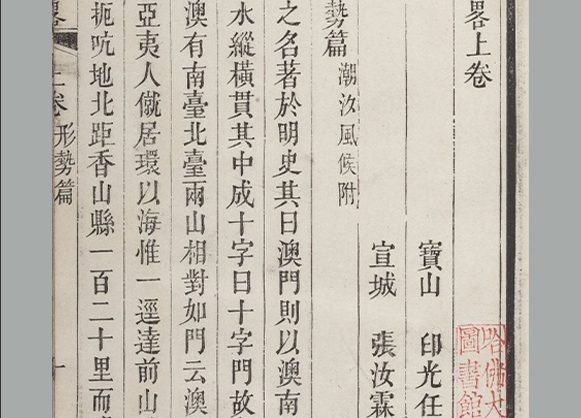 畧上卷
寶山 印光任
宣城 張汝霖
勢篇 潮汐風候附
之名著於明史其曰澳門則以澳南
水縱橫貫其中成十字曰十字門故
澳有南臺北臺兩山相對如門云澳
亞夷人僦居環以海惟一逕達前山
扼吭地北距香山縣一百二十里而
畧 上卷 形勢篇
哈佛大
圖書館